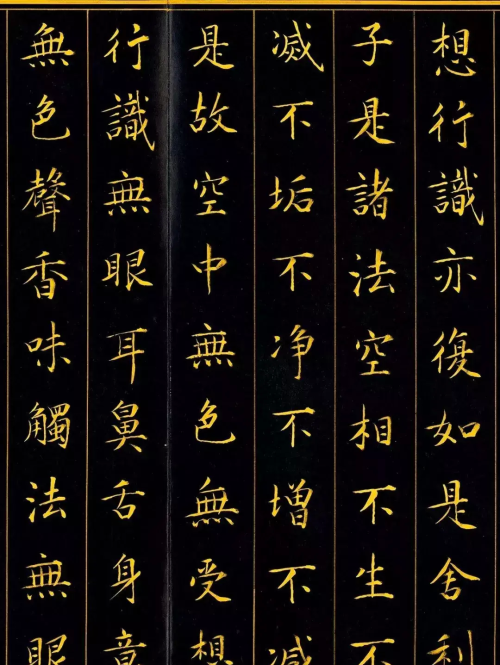 想行識亦復如是舍利
子是諸法空相不生不
滅不垢不净不增不減
是故空中無色無受想
行識無眼耳鼻舌身意
無色聲香味觸法無眼